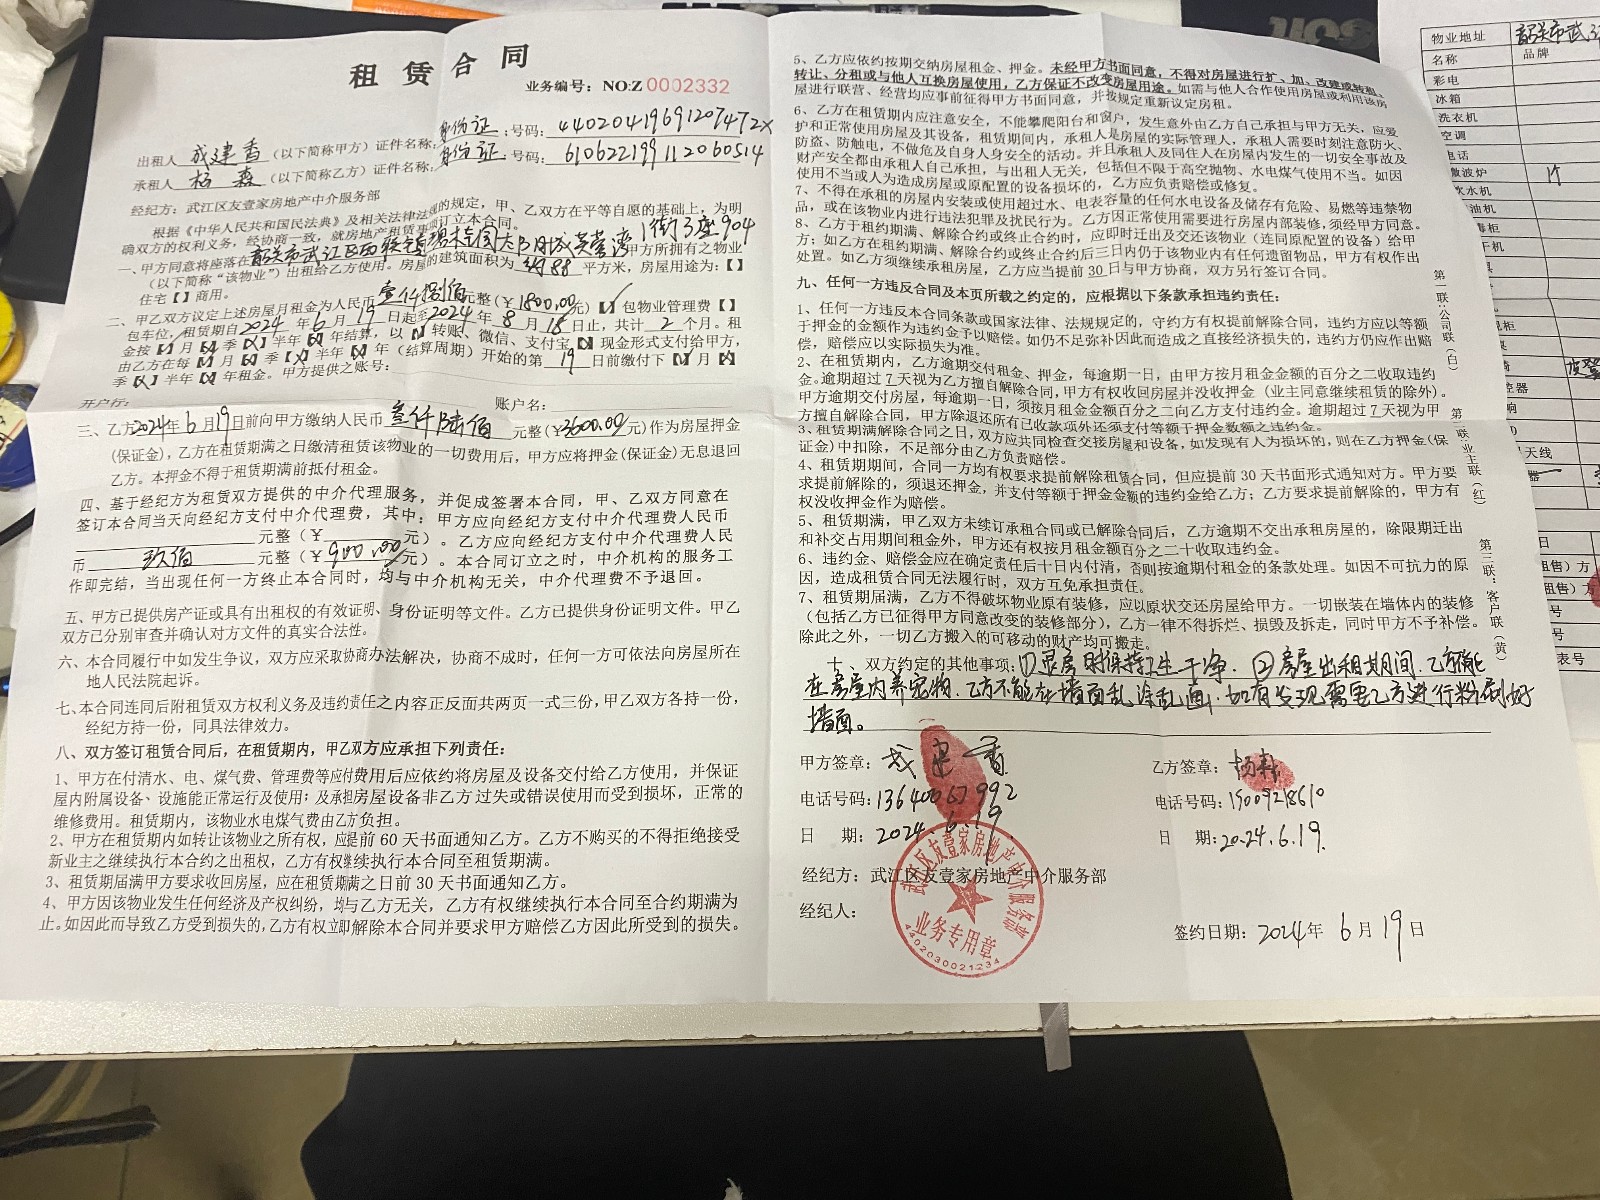 租 赁 合 同
业务编号：NO:Z 0002332
出租人 成建香 (以下简称甲方) 证件名称: 身份证 ;号码: 44020419691207472X
承租人 杨森 (以下简称乙方) 证件名称: 身份证 ;号码: 610622199112060514
经纪方：武江区友壹家房地产中介服务部
根据《中华人民共和国民法典》及相关法律法规的规定，甲、乙双方在平等自愿的基础上，为明
确双方的权利义务，经协商一致，就房地产租赁事项订立本合同。
一、甲方同意将座落在 韶关市武江区西联镇碧桂园太阳城芙蓉湾1街3座904 甲方所拥有之物业
（以下简称“该物业”）出租给乙方使用。房屋的建筑面积为 约88 平方米，房屋用途为：【】
住宅【】商用。
二、甲乙双方议定上述房屋月租金为人民币 壹仟捌佰 元整（￥1800.00元）【✓】包物业管理费【】
包车位，租赁期自 2024 年 6 月 19 日起至 2024 年 8 月 18 日止，共计 2 个月。租
金按【】月【】季【】半年【】年结算，以【】转账、微信、支付宝【】现金形式支付给甲方，
由乙方在每【】月【】季【】半年【】年（结算周期）开始的第 19 日前缴付下【】月【】
季【】半年【】年租金。甲方提供之账号：
开户行： 账户名：
三、乙方 2024年 6 月 19 日前向甲方缴纳人民币 叁仟陆佰 元整（￥3600.00元)作为房屋押金
(保证金)，乙方在租赁期满之日缴清租赁该物业的一切费用后，甲方应将押金(保证金)无息退回
乙方。本押金不得于租赁期满前抵付租金。
四、基于经纪方为租赁双方提供的中介代理服务，并促成签署本合同，甲、乙双方同意在
签订本合同当天向经纪方支付中介代理费，其中：甲方应向经纪方支付中介代理费人民币
元整（￥ 元）。乙方应向经纪方支付中介代理费人民
币 玖佰 元整（￥900.00元）。本合同订立之时，中介机构的服务工
作即完结，当出现任何一方终止本合同时，均与中介机构无关，中介代理费不予退回。
五、甲方已提供房产证或具有出租权的有效证明、身份证明等文件。乙方已提供身份证明文件。甲乙
双方已分别审查并确认对方文件的真实合法性。
六、本合同履行中如发生争议，双方应采取协商办法解决，协商不成时，任何一方可依法向房屋所在
地人民法院起诉。
七、本合同连同后附租赁双方权利义务及违约责任之内容正反面共两页一式三份，甲乙双方各持一份，
经纪方持一份，同具法律效力。
八、双方签订租赁合同后，在租赁期内，甲乙双方应承担下列责任：
1、甲方在付清水、电、煤气费、管理费等应付费用后应依约将房屋及设备交付给乙方使用，并保证
屋内附属设备、设施能正常运行及使用；及承担房屋设备非乙方过失或错误使用而受到损坏，正常的
维修费用。租赁期内，该物业水电煤气费由乙方负担。
2、甲方在租赁期内如转让该物业之所有权，应提前 60 天书面通知乙方。乙方不购买的不得拒绝接受
新业主之继续执行本合约之出租权，乙方有权继续执行本合同至租赁期满。
3、租赁期届满甲方要求收回房屋，应在租赁期满之日前 30 天书面通知乙方。
4、甲方因该物业发生任何经济及产权纠纷，均与乙方无关，乙方有权继续执行本合同至合约期满为
止。如因此而导致乙方受到损失的，乙方有权立即解除本合同并要求甲方赔偿乙方因此所受到的损失。
5、乙方应依约按期交纳房屋租金、押金。未经甲方书面同意，不得对房屋进行扩、加、改建或转租、
转让、分租或与他人互换房屋使用，乙方保证不改变房屋用途。如需与他人合作使用房屋或利用该房
屋进行联营、经营均应事前征得甲方书面同意，并按规定重新议定房租。
6、乙方在租赁期内应注意安全，不能攀爬阳台和窗户，发生意外由乙方自己承担与甲方无关，应爱
护和正常使用房屋及其设备，租赁期间内，承租人是房屋的实际管理人，承租人需要时刻注意防火、
防盗、防触电，不做危及自身人身安全的活动。并且承租人及同住人在房屋内发生的一切安全事故及
财产安全都由承租人自己承担，与出租人无关，包括但不限于高空抛物、水电煤气使用不当。如因
使用不当或人为造成房屋或原配置的设备损坏的，乙方应负责赔偿或修复。
7、不得在承租的房屋内安装或使用超过水、电表容量的任何水电设备及储存有危险、易燃等违禁物
品，或在该物业内进行违法犯罪及扰民行为。乙方因正常使用需要进行房屋内部装修，须经甲方同意。
8、乙方于租约期满、解除合约或终止合约时，应即时迁出及交还该物业（连同原配置的设备）给甲
方；如乙方在租约期满、解除合约或终止合约后三日内仍于该物业内有任何遗留物品，甲方有权作出
处置。如乙方须继续承租房屋，乙方应当提前 30 日与甲方协商，双方另行签订合同。
九、任何一方违反合同及本页所载之约定的，应根据以下条款承担违约责任：
1、任何一方违反本合同条款或国家法律、法规规定的，守约方有权提前解除合同，违约方应以等额
于押金的金额作为违约金予以赔偿。如仍不足弥补因此而造成之直接经济损失的，违约方仍应作出赔
偿，赔偿应以实际损失为准。
2、在租赁期内，乙方逾期交付租金、押金，每逾期一日，由甲方按月租金金额的百分之二收取违约
金。逾期超过 7 天视为乙方擅自解除合同，甲方有权收回房屋并没收押金（业主同意继续租赁的除外）。
甲方逾期交付房屋，每逾期一日，须按月租金金额百分之二向乙方支付违约金。逾期超过 7 天视为甲
方擅自解除合同，甲方除退还所有已收款项外还须支付等额于押金数额之违约金。
3、租赁期满解除合同之日，双方应共同检查交接房屋和设备，如发现有人为损坏的，则在乙方押金(保
证金)中扣除，不足部分由乙方负责赔偿。
4、租赁期期间，合同一方均有权要求提前解除租赁合同，但应提前 30 天书面形式通知对方。甲方要
求提前解除的，须退还押金，并支付等额于押金金额的违约金给乙方；乙方要求提前解除的，甲方有
权没收押金作为赔偿。
5、租赁期满，甲乙双方未续订承租合同或已解除合同后，乙方逾期不交出承租房屋的，除限期迁出
和补交占用期间租金外，甲方还有权按月租金额百分之二十收取违约金。
6、违约金、赔偿金应在确定责任后十日内付清，否则按逾期付租金的条款处理。如因不可抗力的原
因，造成租赁合同无法履行时，双方互免承担责任。
7、租赁期届满，乙方不得破坏物业原有装修，应以原状交还房屋给甲方。一切嵌装在墙体内的装修
（包括乙方已征得甲方同意改变的装修部分），乙方一律不得拆烂、损毁及拆走，同时甲方不予补偿。
除此之外，一切乙方搬入的可移动的财产均可搬走。
十、双方约定的其他事项：①退房时保持卫生干净．②房屋出租期间．乙方不能
在房屋内养宠物．乙方不能在墙面乱涂乱画．如有发现需要乙方进行粉刷好
墙面。
甲方签章：成建香
电话号码：13640067992
日 期：2024.6.19
乙方签章：杨森
电话号码：15009218610
日 期：2024.6.19.
经纪方：武江区友壹家房地产中介服务部
经纪人：
签约日期：2024年 6 月 19 日
武江区友壹家房地产中介服务部
业务专用章
4402030021234
第一联：公司联（白）
第二联：业主联（红）
第三联：客户联（黄）
物业地址 韶关市武江
名称 品牌
彩电
冰箱
洗衣机
空调
电话
微波炉
饮水机
油机